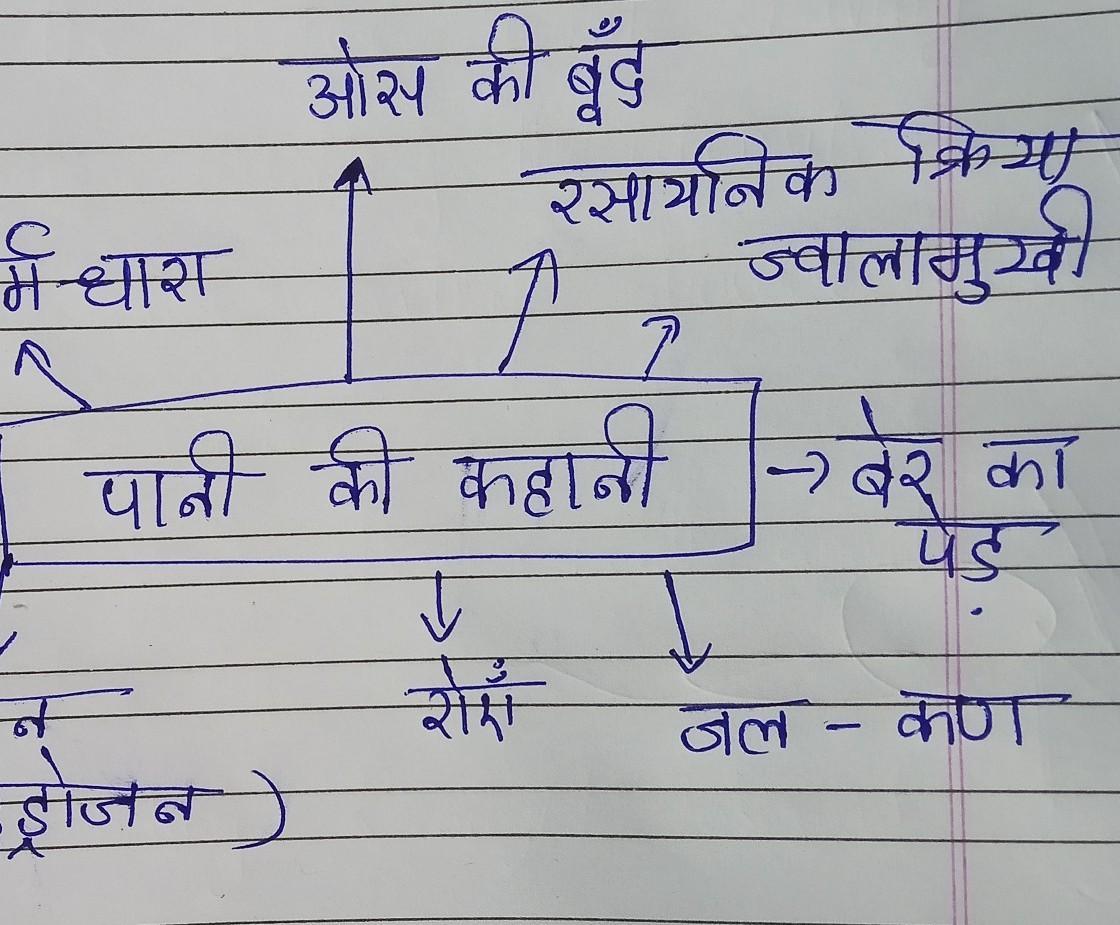 ओस की बूँद
रसायनिक क्रिया
ज्वालामुखी
र्म धारा
पानी की कहानी
बेर का
पेड़
न
रोएँ
जल - कण
ड्रोजन )